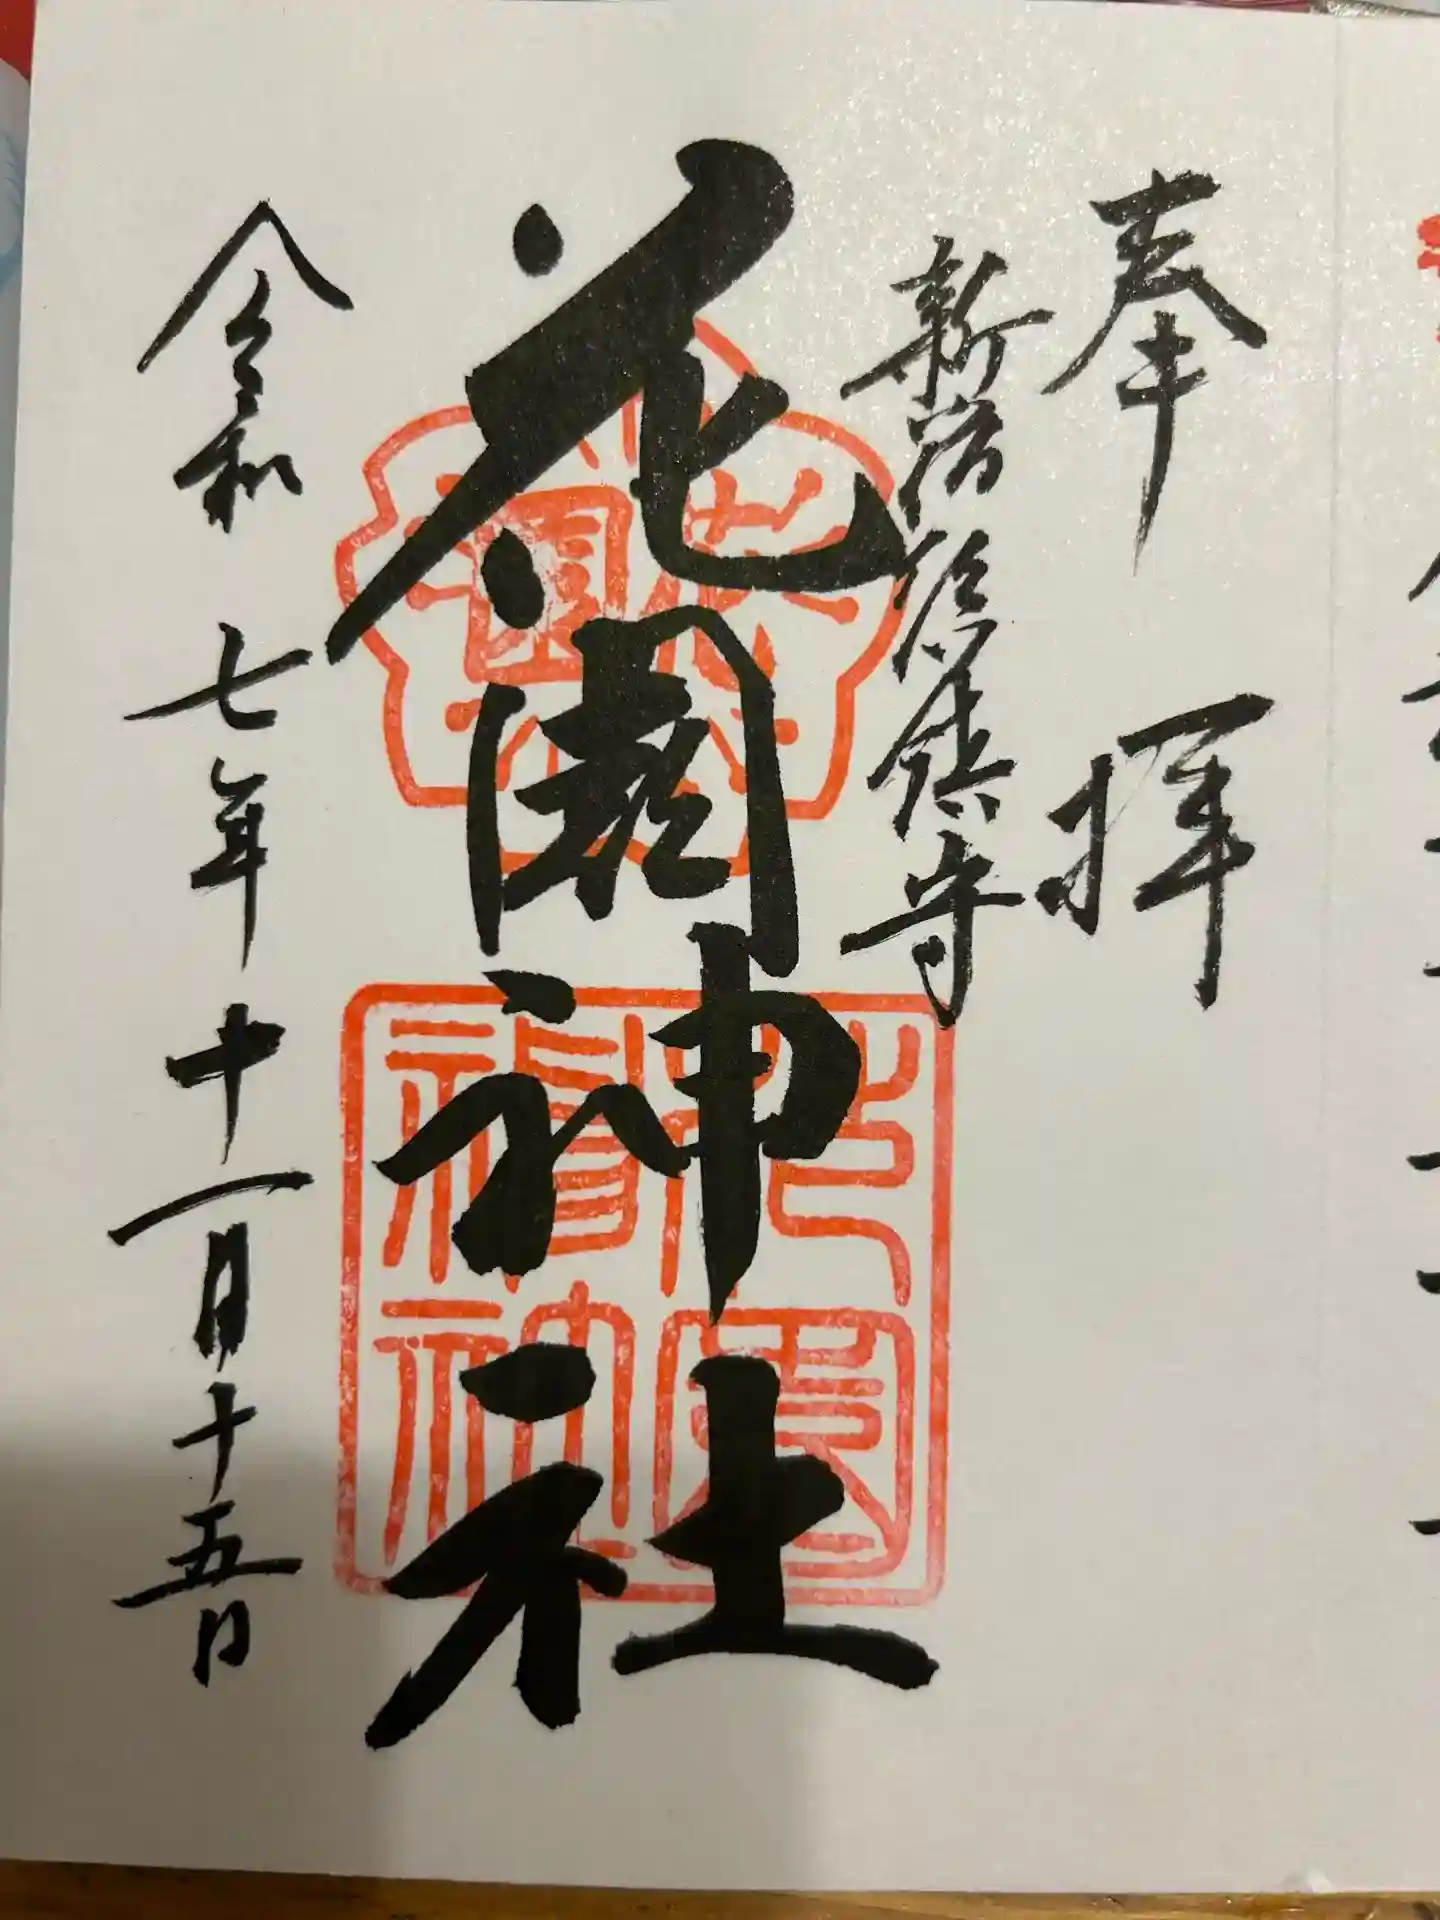 奉拝
新宿総鎮守
花園神社
令和七年十一月十五日
花園
花園神社